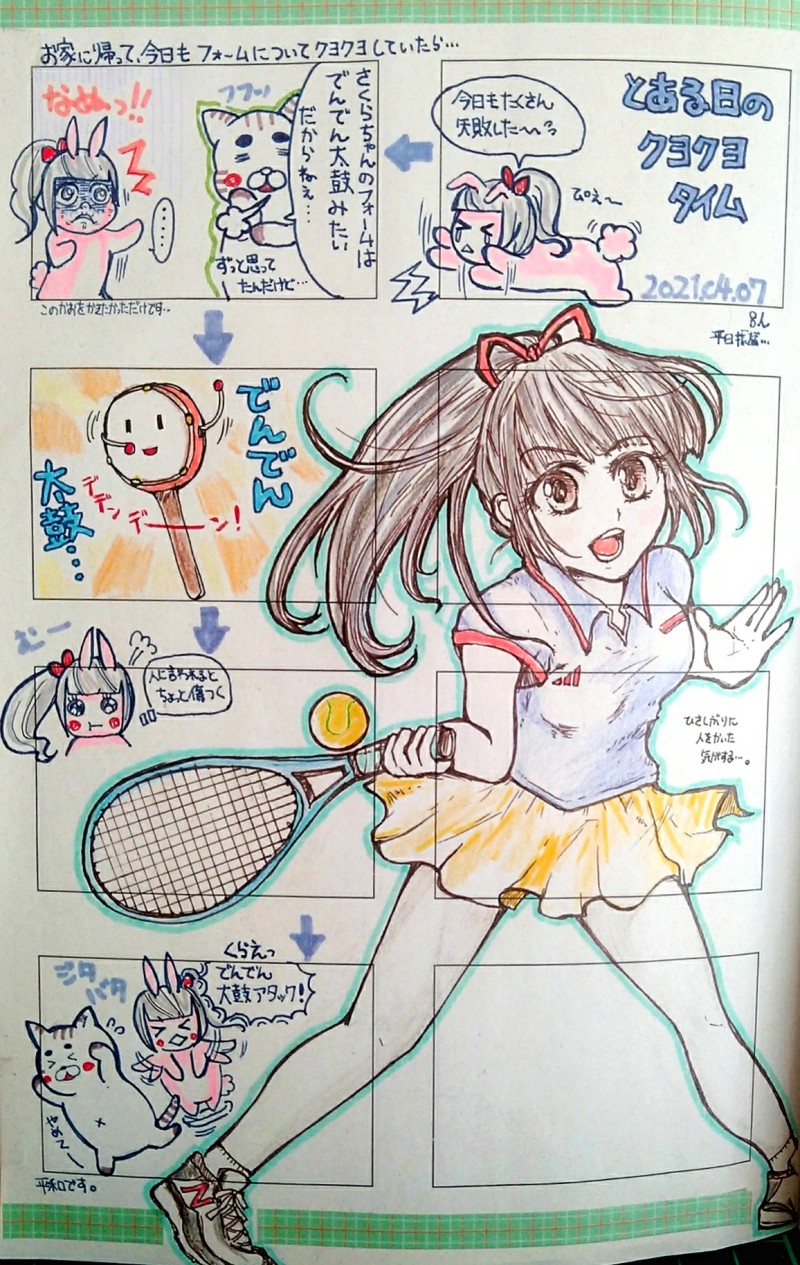 お家に帰って、今日もフォームについてクヨクヨしていたら…
とある日の
クヨクヨ
タイム
2021.04.07
今日もたくさん
失敗した〜〜っ
ぴえ〜
さくらちゃんのフォームは
でんでん太鼓みたい
だからねぇ…
フフッ
ずっと思って
たんだけど…
なぬっ!!
このかおをかきたかっただけです…
でんでん
太鼓…
デデンデーーン!
むー
人に言われると
ちょっと傷つく
ひさしぶりに
人をかいた
気がする…。
くらえっ
でんでん
太鼓アタック!
ジタ
バタ
やめ〜
平和です。
N